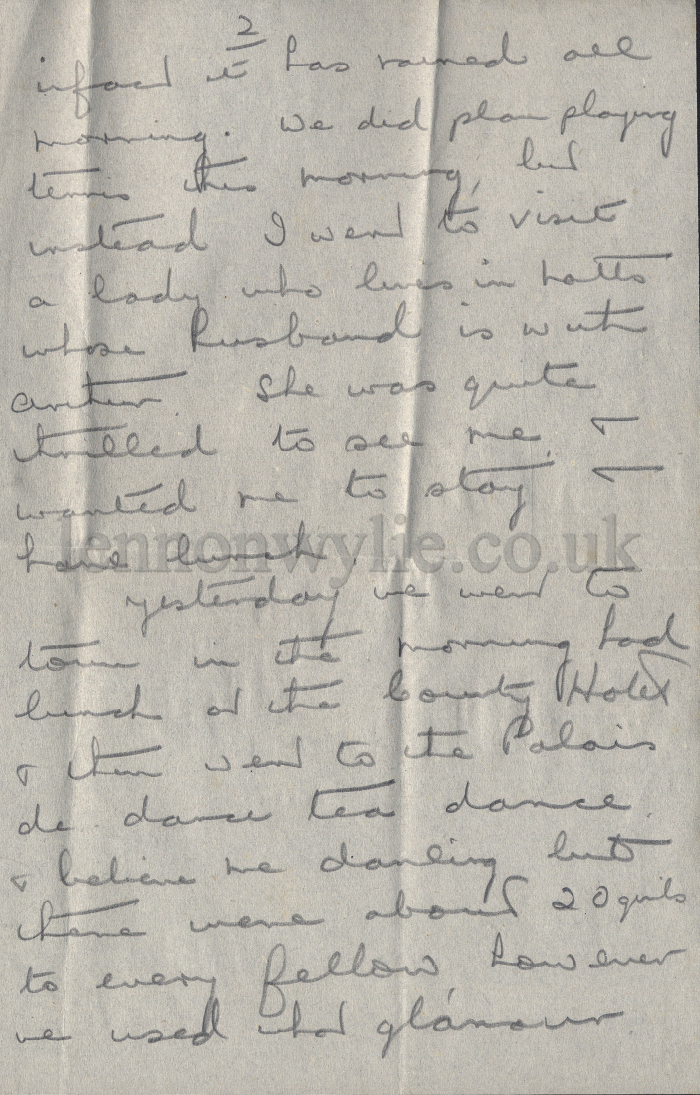 2
infact it has rained all
morning. We did plan playing
tennis this morning, but
instead I went to visit
a lady who lives in
whose husband is with
She was quite
thrilled to see me, &
wanted me to stay &
have lunch.
lennonwylie.co.uk
yesterday we went to
town in the morning had
lunch at the County Hotel
& then went to the Palais
de dance tea dance.
& believe me darling but
there were about 20 girls
to every fellow, however
we used what glamour